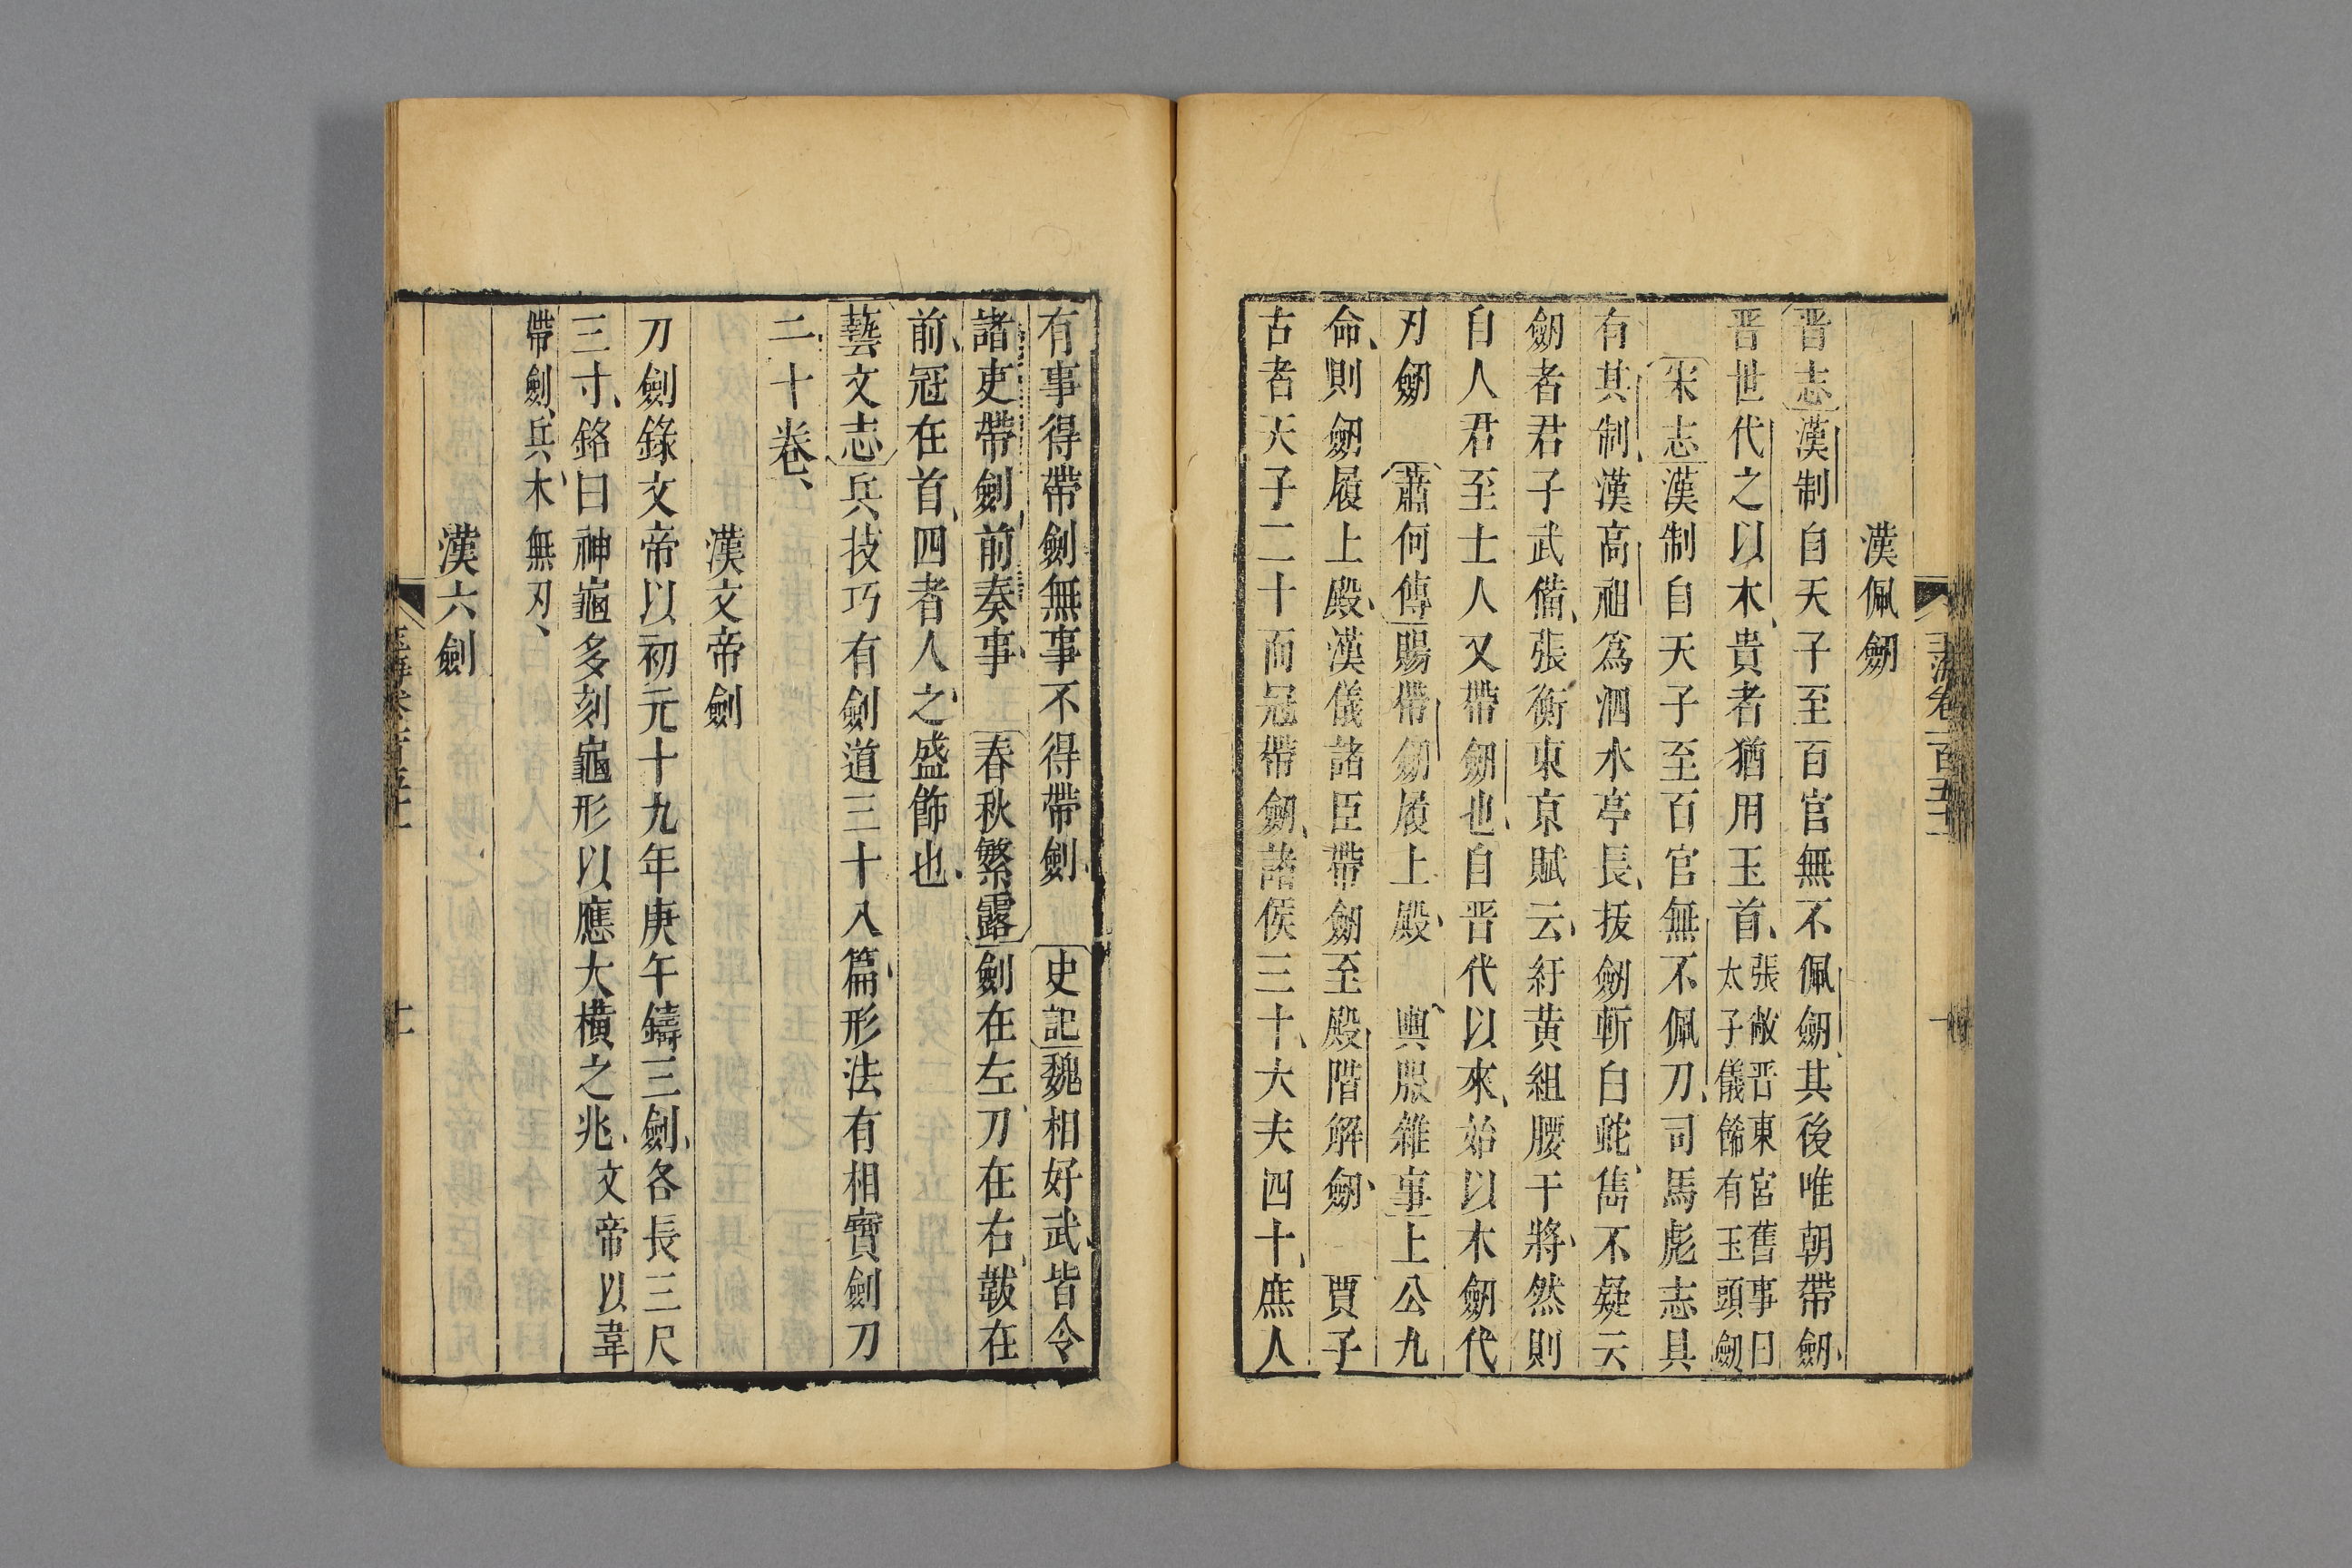 漢佩劒
晉志漢制自天子至百官無不佩劒其後唯朝帶劒
晉世代之以木貴者猶用玉首張敞晉東宮舊事曰太子儀餙有玉頭劒
宋志漢制自天子至百官無不佩刀司馬彪志具
有其制漢高祖為泗水亭長拔劒斬白蛇雋不疑云
劒者君子武備張衡東京賦云紆黃組腰干將然則
自人君至士人又帶劒也自晉代以來始以木劒代
刃劒　蕭何傳賜帶劒履上殿　輿服雜事上公九
命則劒履上殿漢儀諸臣帶劒至殿階解劒　賈子
古者天子二十而冠帶劒諸侯三十大夫四十庶人
有事得帶劍無事不得帶劍　史記魏相好武皆令
諸吏帶劍前奏事　春秋繁露劍在左刀在右韍在
前冠在首四者人之盛飾也
藝文志兵技巧有劍道三十八篇形法有相寶劍刀
二十卷
漢文帝劍
刀劍錄文帝以初元十九年庚午鑄三劍各長三尺
三寸銘曰神龜多刻龜形以應大橫之兆文帝以韋
帶劍兵木無刃
漢六劍